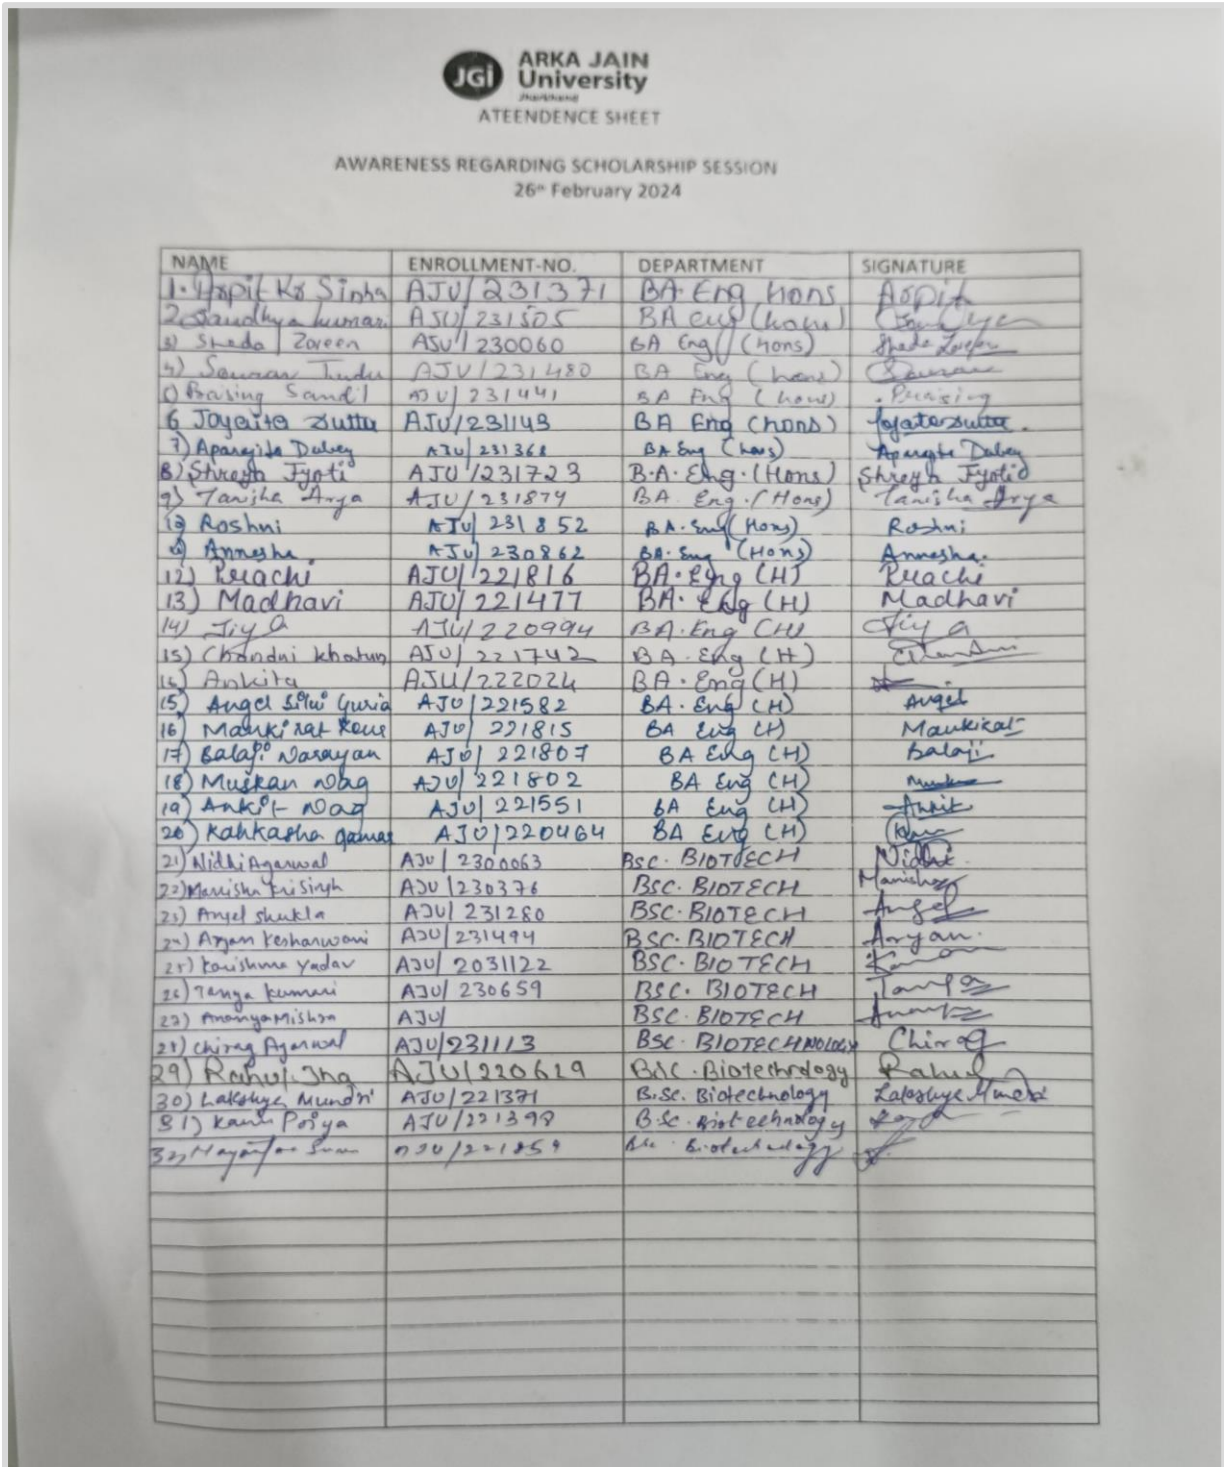 JGi ARKA JAIN
University
Jharkhand
ATEENDENCE SHEET
AWARENESS REGARDING SCHOLARSHIP SESSION
26th February 2024
NAME ENROLLMENT-NO. DEPARTMENT SIGNATURE
1. Arpit Kr Sinha AJU/231371 BA. Eng Hons Arpit
2. Sandhya kumari AJU/231505 BA eng (hons)
3) Sheda Zareen AJU/230060 BA Eng (Hons) Sheda Zareen
4) Sourav Tudu AJU/231480 BA Eng (hons) Sourav
Sandil AJU/231441 BA Eng (hons)
6 Joyeita Dutta AJU/231149 BA Eng (hons) Dutta.
7) Aparajita Dubey AJU/231368 BA Eng (hons) Aparajita Dubey
8) Shreya Jyoti AJU/231723 B.A. Eng. (Hons) Shreya Jyoti
9) Tanisha Arya AJU/231874 BA. Eng. (Hons) Tanisha Arya
Roshni AJU/231852 BA. Eng (Hons) Roshni
Annesha AJU/230862 BA. Eng (Hons) Annesha.
12) Prachi AJU/221816 BA. Eng (H) Prachi
13) Madhavi AJU/221477 BA. Eng (H) Madhavi
14) Jiya AJU/220994 BA. Eng (H) Jiya
15) Chandni Khatun AJU/221742 BA. Eng (H)
16) Ankita AJU/222024 BA. Eng (H)
15) Angel Guria AJU/221582 BA. Eng (H) Angel
16) Mankirat Kour AJU/221815 BA Eng (H) Mankirat
17) Balaji Narayan AJU/221807 BA Eng (H) Balaji
18) Muskan Nag AJU/221802 BA Eng (H)
19) Ankit Nag AJU/221551 BA Eng (H) Ankit
20) Kahkasha Qamar AJU/220464 BA Eng (H)
21) Nidhi Agarwal AJU/2300063 BSC. BIOTECH Nidhi.
22) Manisha AJU/230376 BSC. BIOTECH Manisha
23) Angel Shukla AJU/231280 BSC. BIOTECH Angel
24) Aryan Kesharwani AJU/231494 BSC. BIOTECH Aryan.
25) Karishma Yadav AJU/2031122 BSC. BIOTECH
26) Tanya Kumari AJU/230659 BSC. BIOTECH Tanya
27) Ananya Mishra AJU/ BSC. BIOTECH
28) Chirag Agarwal AJU/231113 BSC. BIOTECHNOLOGY Chirag
29) Rahul Jha AJU/220629 BSC. Biotechnology Rahul
30) Lakshya Mundri AJU/221371 B.Sc. Biotechnology Lakshya Mundri
31) Priya AJU/221398 B.Sc. Biotechnology
32) AJU/221859 Bsc. Biotechnology